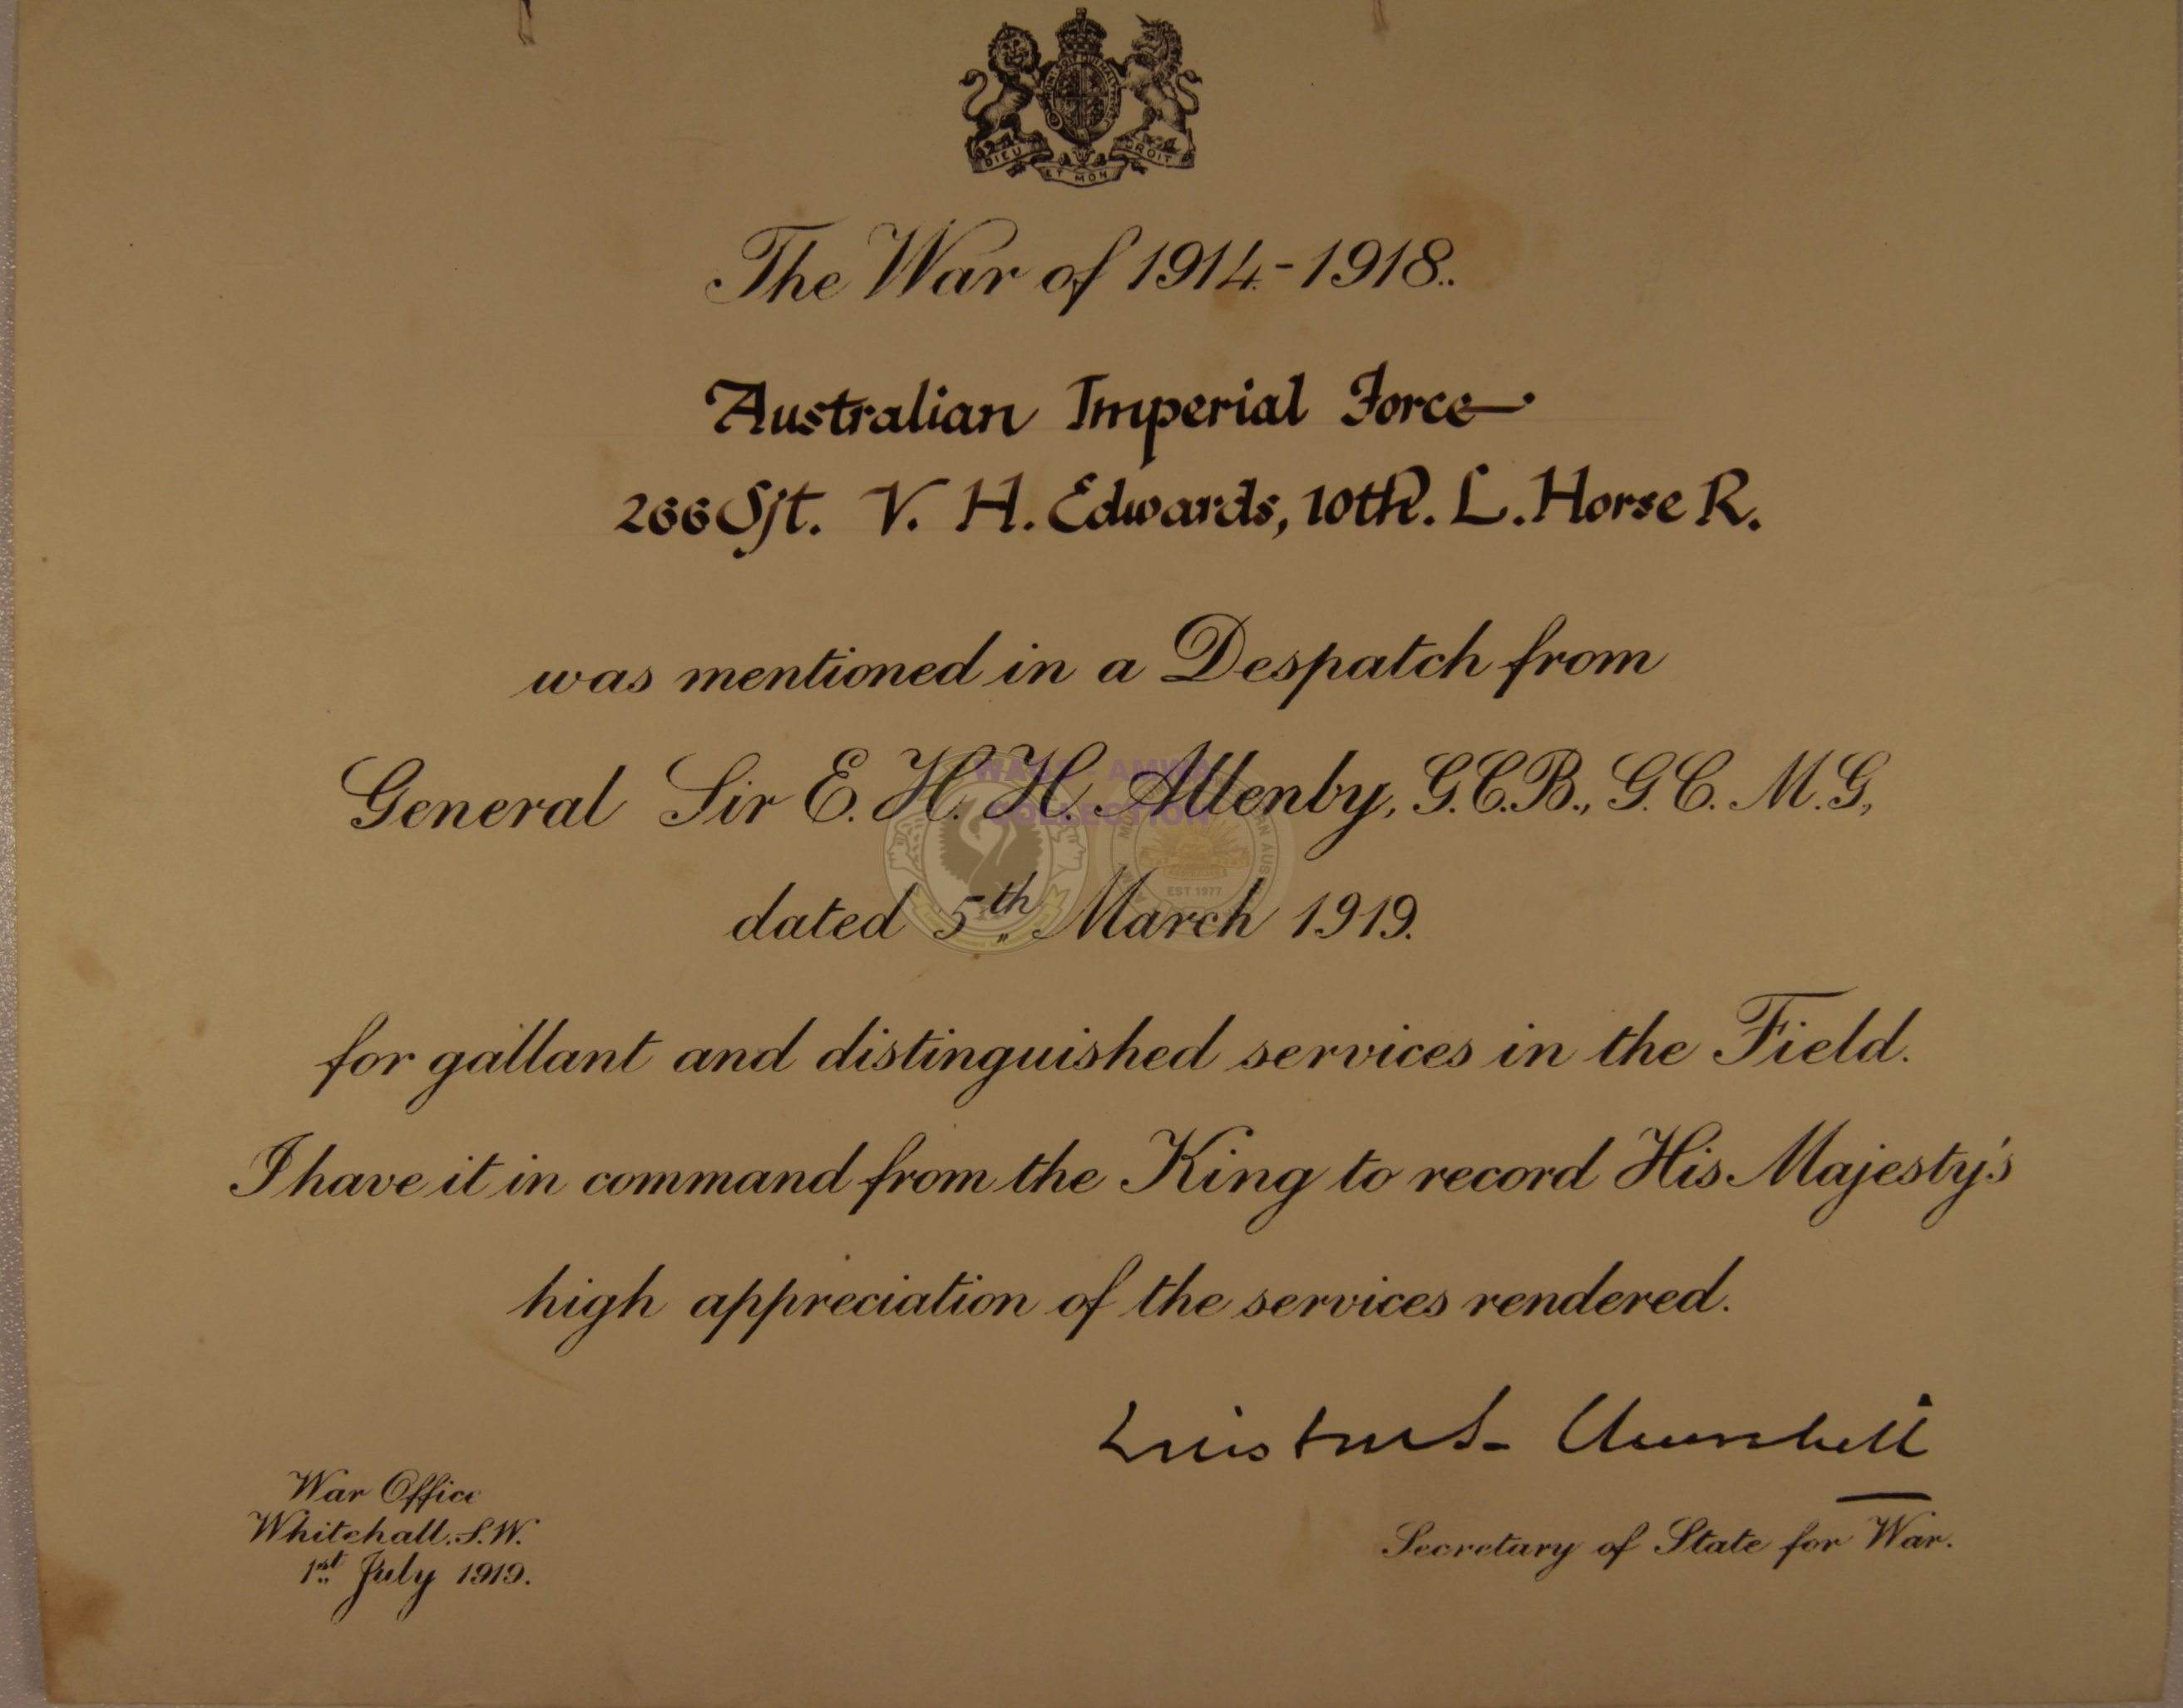 DIEU ET MON DROIT
The War of 1914-1918.
Australian Imperial Force
266 Sjt. V. H. Edwards, 10th. L. Horse R.
was mentioned in a Despatch from
General Sir E. H. H. Allenby, G.C.B., G.C.M.G.,
WAGS - AMWA
COLLECTION
EST 1977
dated 5th March 1919.
for gallant and distinguished services in the Field.
I have it in command from the King to record His Majesty's
high appreciation of the services rendered.
Winston S. Churchill
Secretary of State for War.
War Office
Whitehall. S.W.
1st July 1919.